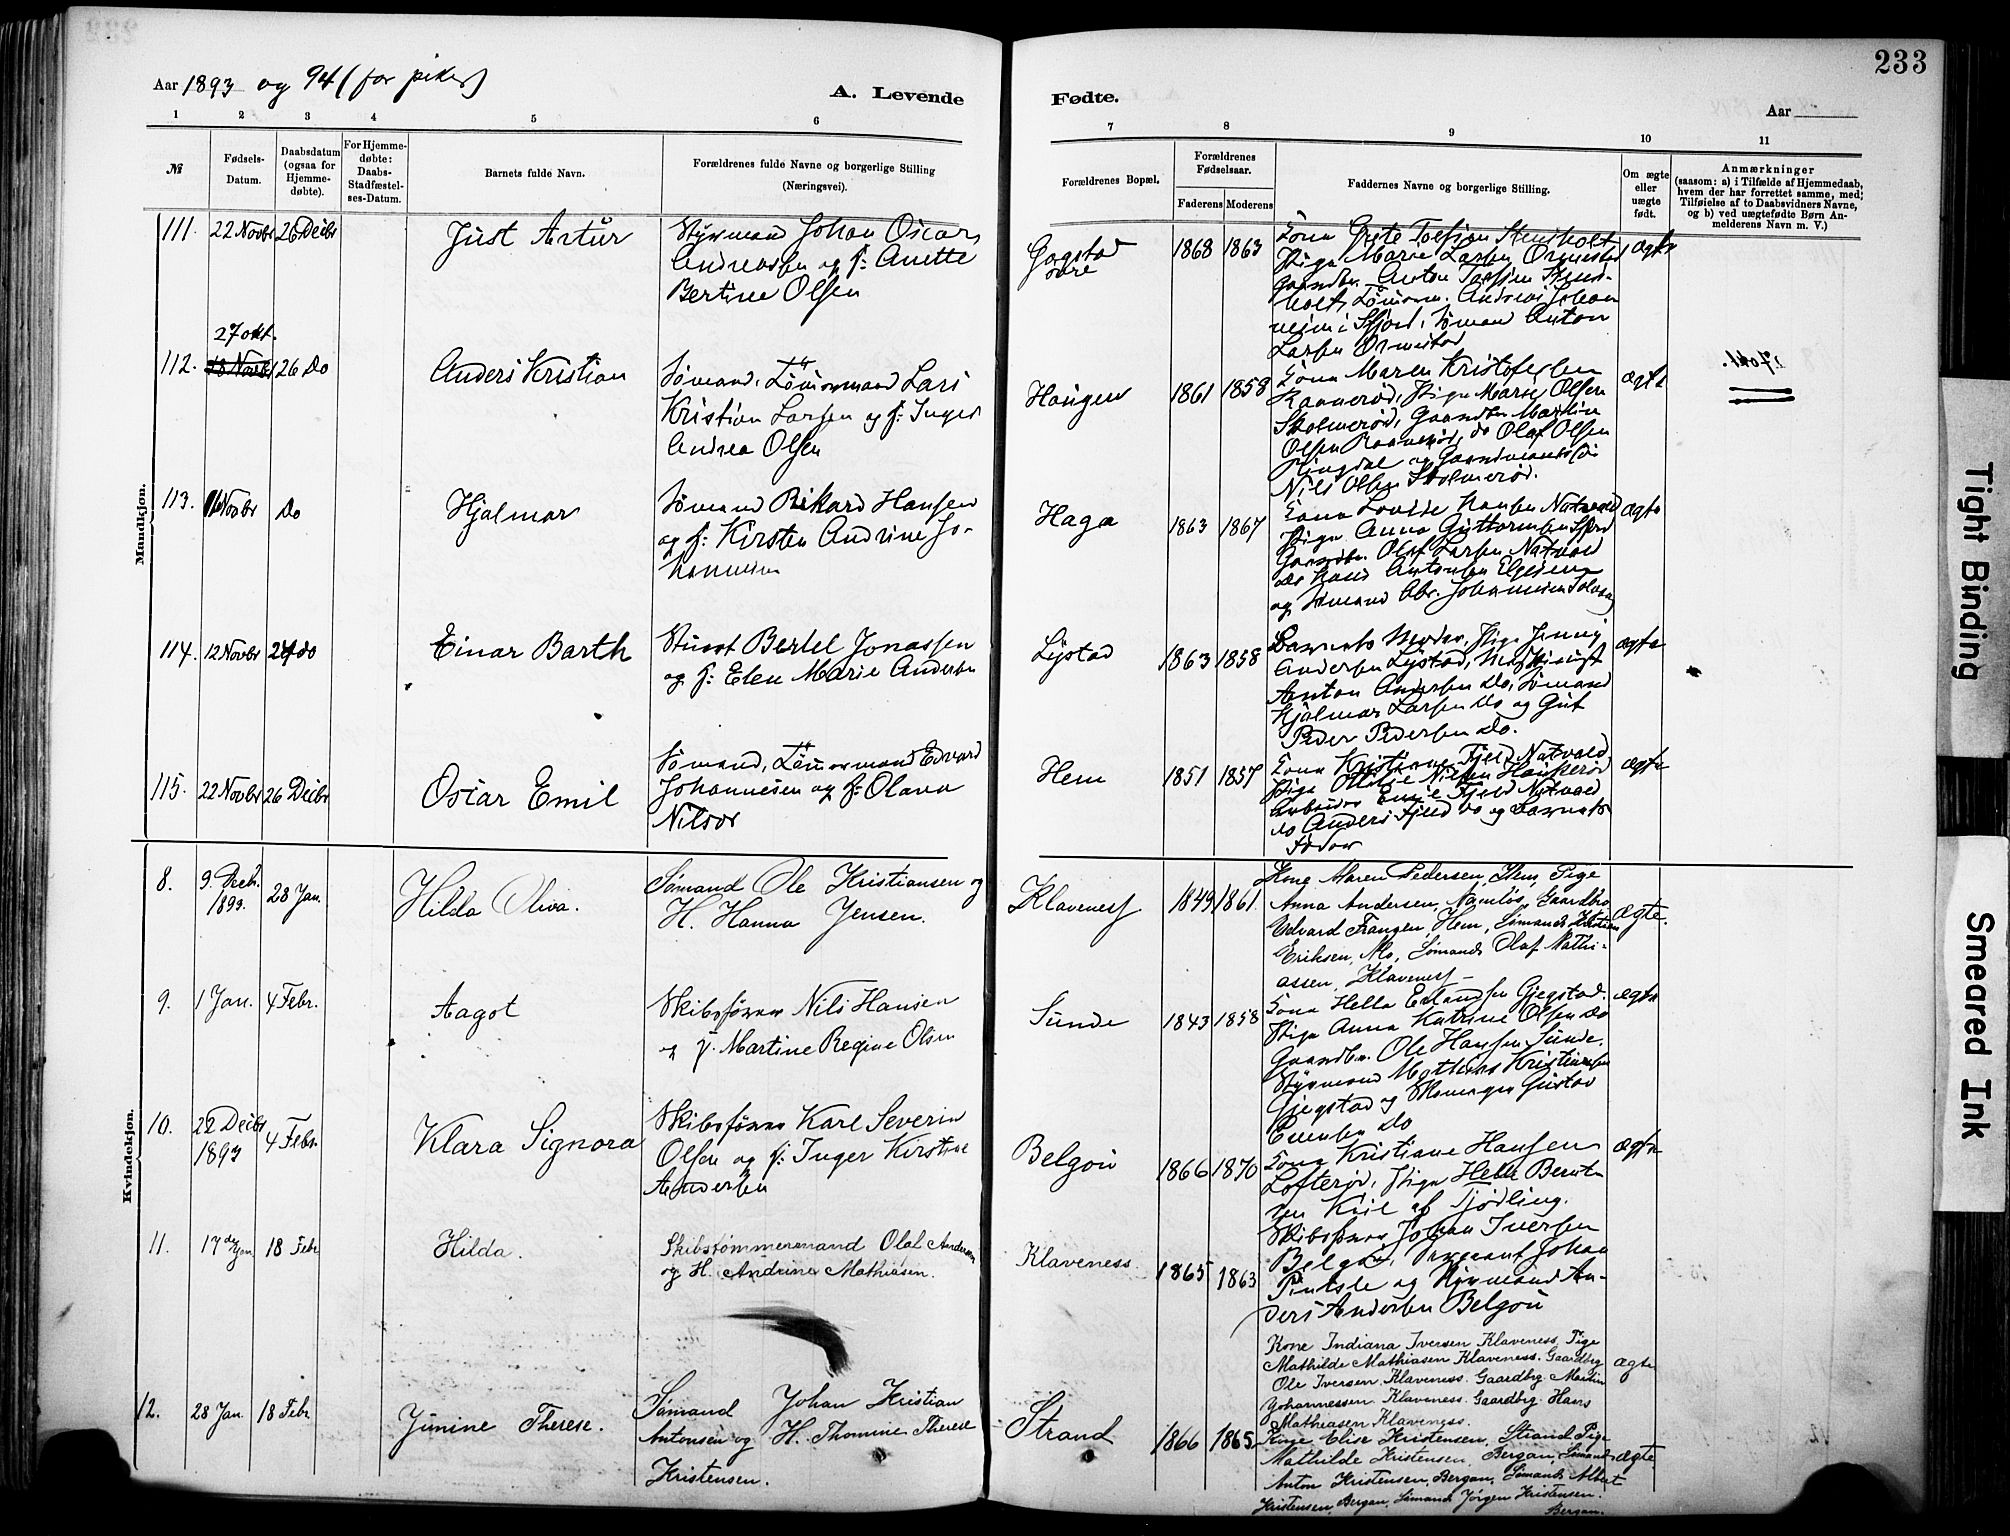 233
Aar 1893 og 94 (for piker)
A. Levende Fødte.
Aar
1 2 3 4 5 6 7 8 9 10 11
№
Fødsels-Datum.
Daabsdatum (ogsaa for Hjemme-døbte).
For Hjemme-døbte: Daabs-Stadfæstel-ses-Datum.
Barnets fulde Navn.
Forældrenes fulde Navne og borgerlige Stilling (Næringsvei).
Forældrenes Bopæl.
Forældrenes Fødselsaar.
Faderens Moderens
Faddernes Navne og borgerlige Stilling.
Om ægte eller uægte født.
Anmærkninger
(saasom: a) i Tilfælde af Hjemmedaab, hvem der har forrettet samme, med Tilføielse af to Daabsvidners Navne, og b) ved uægtefødte Børn An-melderens Navn m. V.)
Mandkjøn.
111. 22 Novbr 26 Decbr Just Artur
Styrmand Johan Oscar
Andreassen og H: Anette
Bertine Olsen
Gogstad
søre
1868 1863
Kona Grete Tolfsen Stensholt
Pige Marie Larsen Ormestad
Gaardbr. Anton Tolfsen Stens-
holt, Tømmerm. Andreas Johan
nesen i Sfjord, Sømand Anton
Larsen Ormestad
ægte
27 okt.
112. 18 Novbr 26 Do Anders Kristian
Sømand, Tømmermand Lars
Kristian Larsen og H: Inger
Andrea Olsen
Haugen
1861 1858
Kona Maren Kristofersen
Rannerød, Pige Marie Olsen
Skolmerød, Gaardbr. Martin
Olsen Rannerød, do Olaf Olsen
og Gaardmands
Nils Olsen Skolmerød.
ægte
27 okt.
113. Novbr Do Hjalmar
Sømand Rikard Hansen
og H: Kirsten Andrine Jo-
hannesen
Haga
1863 1867
Kona Lovise Hansen Natvald
Pige Anna Guttormsen
Gaardbr. Olaf Larsen Natvald
do Hans Antonsen Elgesem
og Sømand Abr. Johannesen
ægte
114. 12 Novbr do Einar Barth
Stuert Bertel Jonassen
og H: Elen Marie Andersen
Lystad
1863 1858
Barnets Moder, Pige Jenny
Andersen Lystad,
Anton Andersen Do, Sømand
Hjalmar Larsen Do og Gut
Peder Pedersen Do.
ægte
115. 22 Novbr 26 Decbr Oscar Emil
Sømand, Tømmermand Edvard
Johannesen og H: Olava
Nilsdr
Hem
1851 1857
Kona Kristiane Fjeld Natvald
Pige Ottilie Nilsen Haukerød
Arbeider Emil Fjeld Natvald
do Anders Fjeld Do og Barnets
Fader
ægte
Kvindekjøn.
8. 9. Decbr. 1893. 28 Jan. Hilda Oliva.
Sømand Ole Kristiansen og
H. Hanna Jensen.
Klaveness
1849 1861.
Kone Maren Pedersen, Hem, Pige
Anna Andersen, Namløs, Gaardbr.
Edvard Frangen, Hem, Sømand Kristian
Eriksen, Mo, Sømand Olaf Mathi-
assen, Klaveness
ægte.
9. 1 Jan. 4 Febr. Aagot
Skibsfører Nils Hansen
og H. Martine Regine Olsen
Sunde
1843 1858
Kona Helle Erlandsen Gjegstad.
Pige Anna Katrine Olsen Do
Gaardbr. Ole Hansen Sunde.
Styrmand Mathias Kristiansen
Gjegstad og Skomager Gustav
Evensen Do
ægte
10. 22 Decbr 1893 4 Febr. Klara Signora
Skibsfører Karl Severin
Olsen og H: Inger Kirstine
Andersen
Belgau
1866 1870
Kona Kristiane Hansen
Lofterød, Pige Helle Bernt-
sen Kiil af Tjødling.
Skibsfører Johan Iversen
Belgau, Sergeant Johan
Pintsle og Styrmand An-
ders Andersen Belgau
ægte
11. 17de Jan 18 Febr Hilda.
Skibstømmermand Olaf Andersen
og H. Andrine Mathiasen.
Klaveness.
1865 1863
Kone Indiana Iversen Klaveness, Pige
Mathilde Mathiasen Klaveness. Gaardbrg
Ole Iversen Klaveness. Gaardbrg Martin
Johannessen Klaveness. Gaardbrg Hans
Mathiasen Klaveness.
ægte
12. 28 Jan. 18 Febr Junine Therese.
Sømand Johan Kristian
Antonsen og H. Thomine Therese
Kristensen.
Strand
1866 1865
Pige Elise Kristensen, Strand, Pige
Mathilde Kristensen, Bergan, Sømand
Anton Kristensen, Bergan, Sømand Albert
Kristensen, Bergan, Sømand Jørgen Kristensen.
Bergan.
ægte.
Tight Binding
Smeared Ink